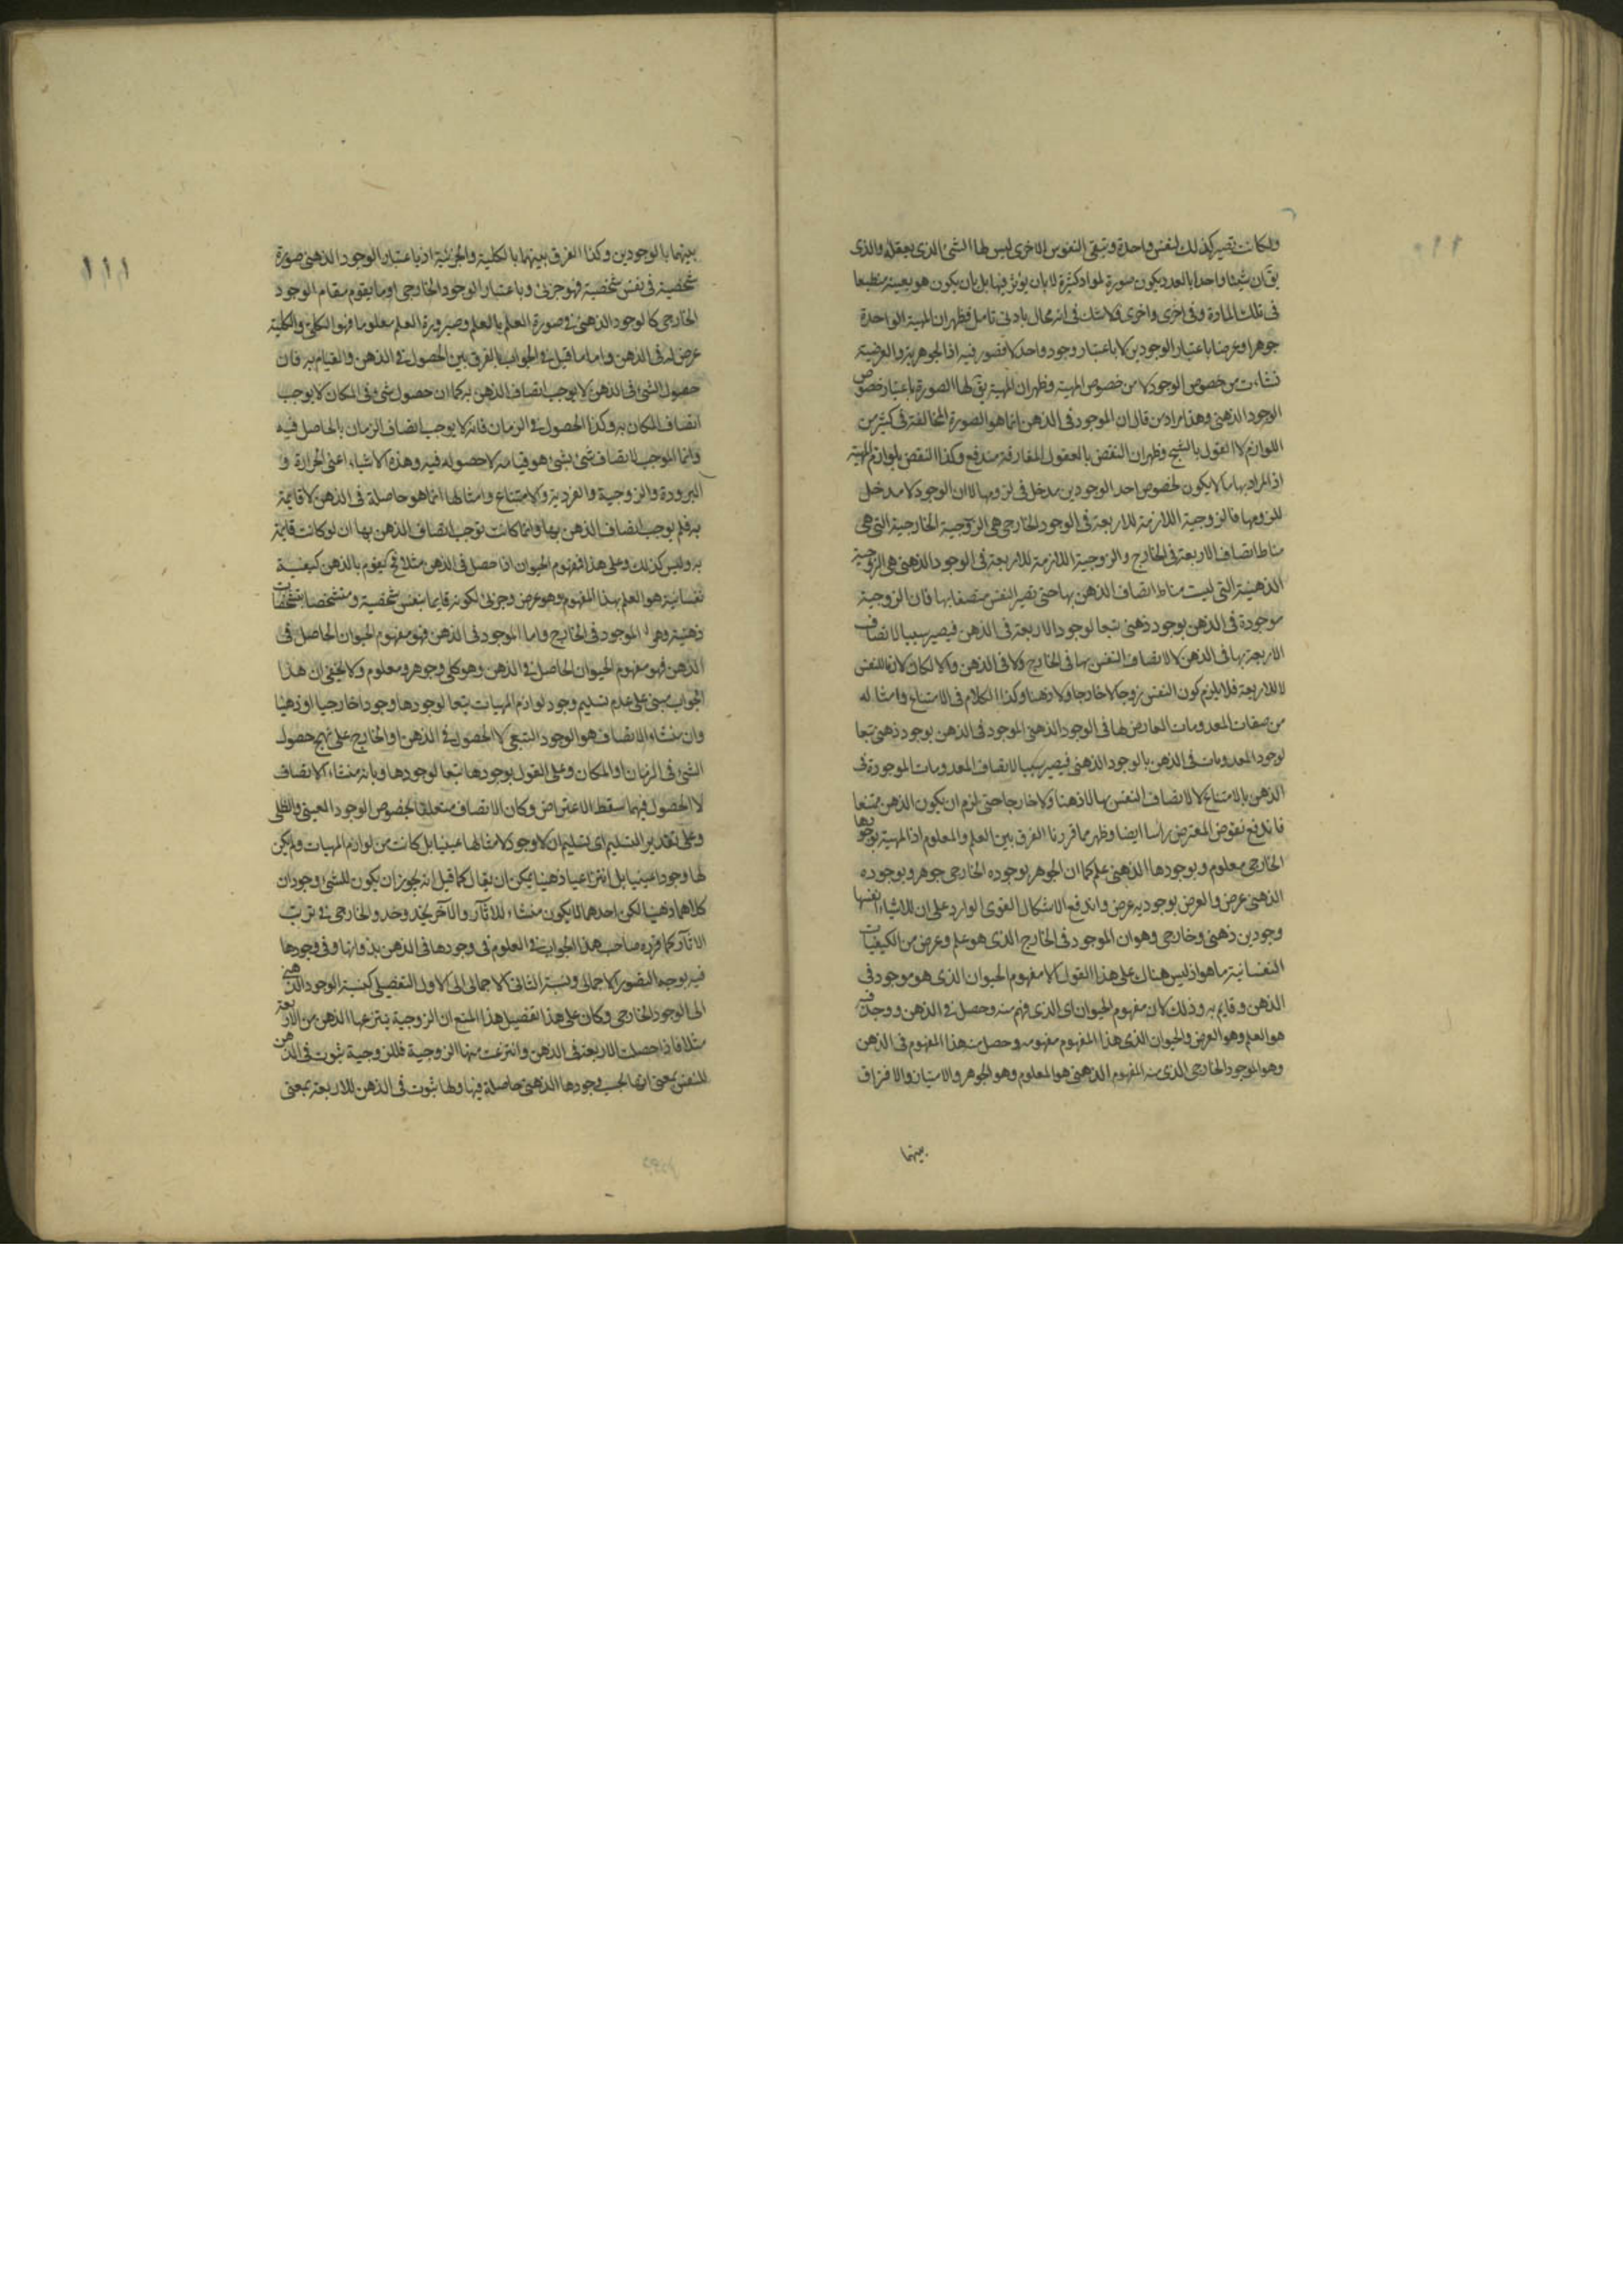 ولكانت تصير كذلك لنفس واحدة وتبقى النفوس الاخرى ليس لها الشئ الذى يعقله والذى
يقٓ ان شيئا واحدا بالعدد يكون صورة لمواد كثيرة لا بان يؤثر فيها بل بان يكون هو بعينه منطبعا
فى تلك المادة وفى اخرى واخرى فلا شك فى انه محال بادنى تامل فظهر ان المهية الواحدة
جوهرا وعرضا باعتبار الوجودين لا باعتبار وجود واحد لا قصور فيه اذ الجوهرية والعرضية
نشاءت من خصوص الوجود لا من خصوص المهية وظهر ان المهية يقٓ لها الصورة باعتبار خصوص
الوجود الذهنى وهذا مراد من قال ان الموجود فى الذهن انما هو الصورة المخالفة فى كثير من
اللوازم لا القول بالشبح وظهر ان النقض بالعقول المفارقة مندفع وكذا النقض بلوازم المهية
اذ المراد بها ما لا يكون لخصوص احد الوجودين مدخل فى لزومها لا ان الوجود لا مدخل
للزومها فالزوجية اللازمة للاربعة فى الوجود الخارجى هى الزوجية الخارجية التى هى
مناط اتصاف الاربعة فى الخارج والزوجية اللازمة للاربعة فى الوجود الذهنى هى الزوجية
الذهنية التى ليست مناط اتصاف الذهن بها حتى تصير النفس متصفا بها فان الزوجية
موجودة فى الذهن بوجود ذهنى تبعا لوجود الاربعة فى الذهن فيصير سببا لاتصاف
الاربعة بها فى الذهن لا لاتصاف النفس بها فى الخارج ولا فى الذهن والا لكان لازما للنفس
لا للاربعة فلا يلزم كون النفس زوجا لا خارجا ولا ذهنا وكذا الكلام فى الامتناع وامثاله
من صفات المعدومات العارض لها فى الوجود الذهنى الموجود فى الذهن بوجود ذهنى تبعا
لوجود المعدومات فى الذهن بالوجود الذهنى فيصير سببا لاتصاف المعدومات الموجودة فى
الذهن بالامتناع لا لاتصاف النفس بها لا ذهنا ولا خارجا حتى لزم ان يكون الذهن ممتنعا
فاندفع نقوض المعترض راسا ايضا وظهر مما قررنا الفرق بين العلم والمعلوم اذ المهية بوجودها
الخارجى معلوم وبوجودها الذهنى علم كما ان الجوهر بوجوده الخارجى جوهر وبوجوده
الذهنى عرض والعرض بوجوديه عرض واندفع الاشكال القوى الوارد على ان للاشياء انفسها
وجودين ذهنى وخارجى وهو ان الموجود فى الخارج الذى هو علم وعرض من الكيفيات
النفسانية ما هو اذ ليس هناك على هذا القول الا مفهوم الحيوان الذى هو موجود فى
الذهن وقايم به وذلك لان مفهوم الحيوان اى الذى فهم منه وحصل فى الذهن ووجد فيه
هو العلم وهو العرض والحيوان الذى هذا المفهوم مفهومه وحصل منه هذا المفهوم فى الذهن
وهو الموجود الخارجى الذى منه المفهوم الذهنى هو المعلوم وهو الجوهر والامتياز والافتراق
بينهما
١١١
بينهما بالوجودين وكذا الفرق بينهما بالكلية والجزئية اذ باعتبار الوجود الذهنى صورة
شخصية فى نفس شخصية فهو جزئى وباعتبار الوجود الخارجى او ما يقوم مقام الوجود
الخارجى كالوجود الذهنى فى صورة العلم بالعلم وصيرورة العلم معلوما فهو الكلى والكلية
عرض له فى الذهن واما ما قيل فى الجواب بالفرق بين الحصول فى الذهن والقيام به فان
حصول الشئ فى الذهن لا يوجب اتصاف الذهن به كما ان حصول شئ فى المكان لا يوجب
اتصاف المكان به وكذا الحصول فى الزمان فانه لا يوجب اتصاف الزمان بالحاصل فيه
وانما الموجب لاتصاف شئ بشئ هو قيامه لا حصوله فيه وهذه الاشياء اعنى الحرارة و
البرودة والزوجية والفردية والامتناع وامثالها انما هو حاصلة فى الذهن لا قايمة
به فلم يوجب اتصاف الذهن بها وانما كانت توجب اتصاف الذهن بها ان لو كانت قايمة
به وليس كذلك وعلى هذا فمفهوم الحيوان اذا حصل فى الذهن مثلا فح يقوم بالذهن كيفية
نفسانية هو العلم بهذا المفهوم وهو عرض وجزئى لكونه قايما بنفس شخصية ومتشخصا بتشخصات
ذهنية وهو الموجود فى الخارج واما الموجود فى الذهن فهو مفهوم الحيوان الحاصل فى
الذهن فهو مفهوم الحيوان الحاصل فى الذهن وهو كلى وجوهر ومعلوم ولا يخفى ان هذا
الجواب مبنى على عدم تسليم وجود لوازم المهيات تبعا لوجودها وجودا خارجيا او ذهنيا
وان منشاء الاتصاف هو الوجود التبعى لا الحصول فى الذهن او الخارج على نهج حصول
الشئ فى الزمان او المكان وعلى القول بوجودها تبعا لوجودها وبانه منشاء الاتصاف
لا الحصول فيهما سقط الاعتراض وكان الاتصاف متعلقا بخصوص الوجود العينى والظلى
وعلى تقدير التسليم اى تسليم ان لا وجود لامثالها عينيا بل كانت من لوازم المهيات ولم يكن
لها وجودا عينيا بل انتزاعيا ذهنيا يمكن ان يقال كما قيل انه يجوز ان يكون للشئ وجودان
كلاهما ذهنيا لكن احدهما لا يكون منشاء للاثار والآخر يحذو حذو الخارجى فى ترتب
الاثار كما قرره صاحب هذا الجواب فى العلوم فى وجودها فى الذهن بذواتها وفى وجودها
فيه بوجه التصور الاجمالى ونسبة الثانى الاجمالى الى الاول التفصيلى كنسبة الوجود الذهنى
الى الوجود الخارجى وكان على هذا تفصيل هذا المنع ان الزوجية ينتزعها الذهن من الاربعة
مثلا فاذا حصلت الاربعة فى الذهن وانتزعت منها الزوجية فللزوجية ثبوت فى الذهن
للنفس بمعنى انها بحسب وجودها الذهنى حاصلة فيها ولها ثبوت فى الذهن للاربعة بمعنى